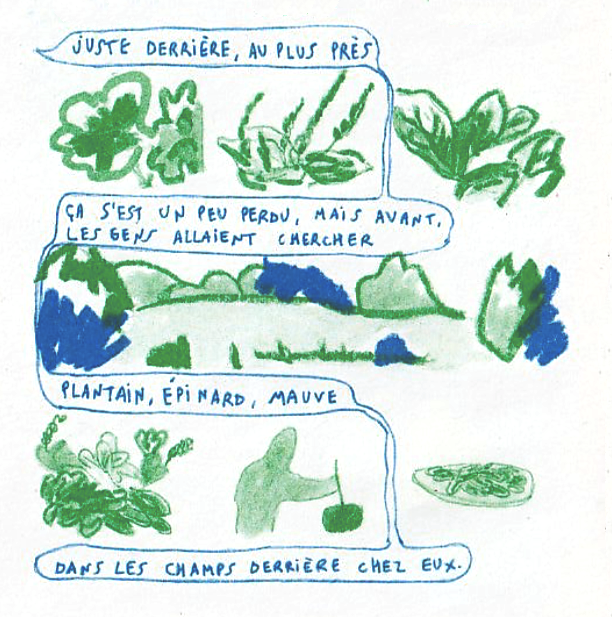 JUSTE DERRIÈRE, AU PLUS PRÈS
ÇA S'EST UN PEU PERDU, MAIS AVANT,
LES GENS ALLAIENT CHERCHER
PLANTAIN, ÉPINARD, MAUVE
DANS LES CHAMPS DERRIÈRE CHEZ EUX.